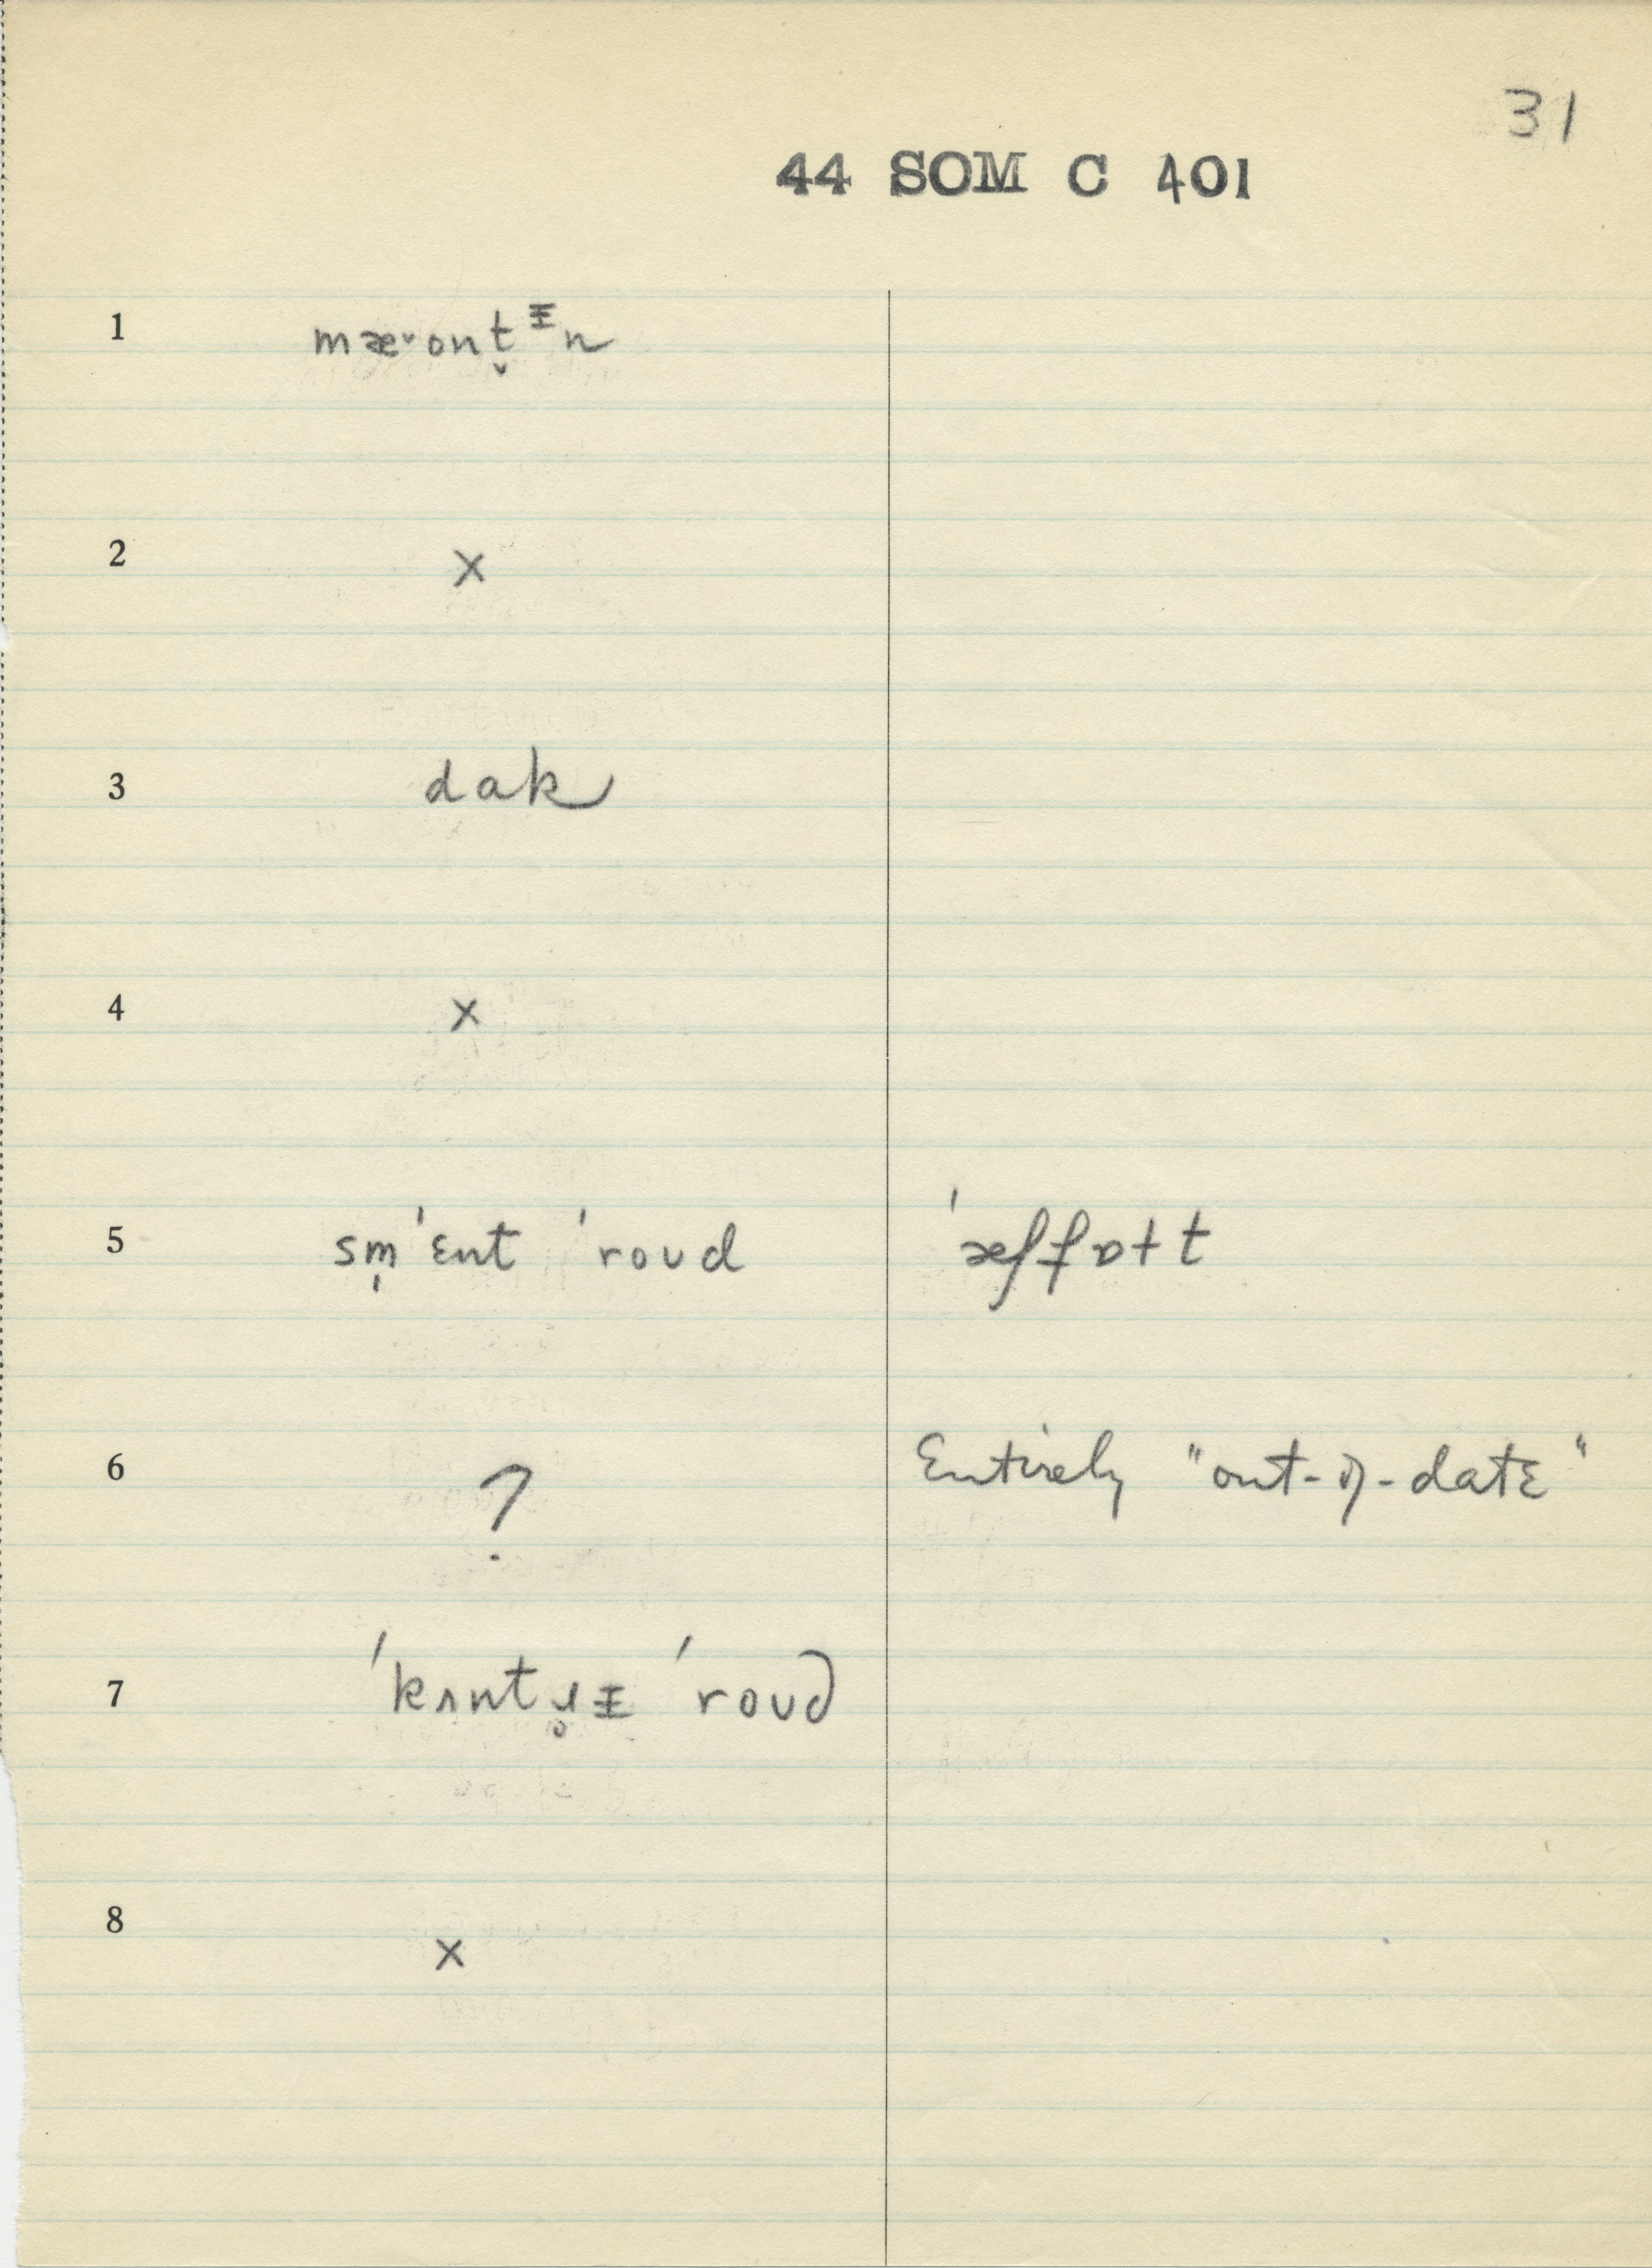 31
44 SOM C 401
1 mæ˅ont̬ᵻn
2 x
3 dak
4 x
5 sm̩ˈɛnt ˈroud ˈæffɒtt
6 ? Entirely "out-of-date"
7 ˈkʌntɹ̥ᵻ ˈroud
8 x